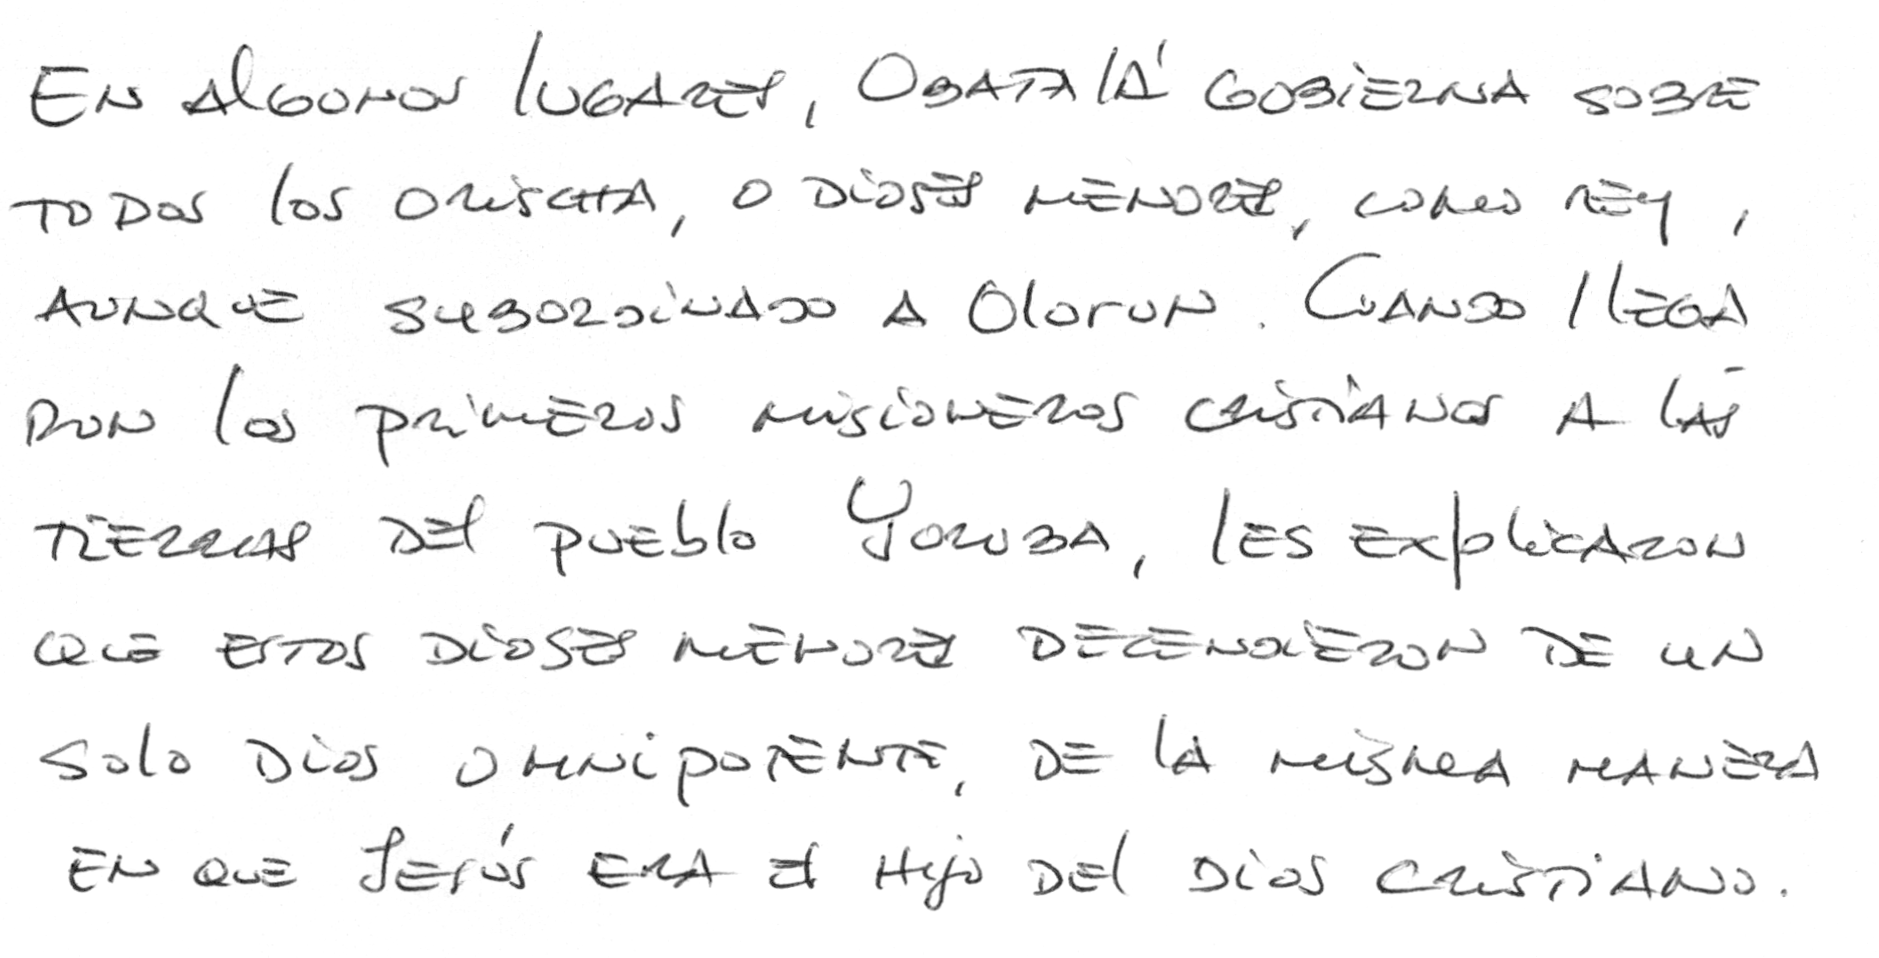 En algunos lugares, Obatalá gobierna sobre
todos los orischa, o dioses menores, como rey,
aunque subordinado a Olorun. Cuando llega
ron los primeros misioneros cristianos a las
tierras del pueblo Yoruba, les explicaron
que estos dioses menores decendieron de un
solo Dios omnipotente, de la misma manera
en que Jesús era el Hijo del Dios cristiano.